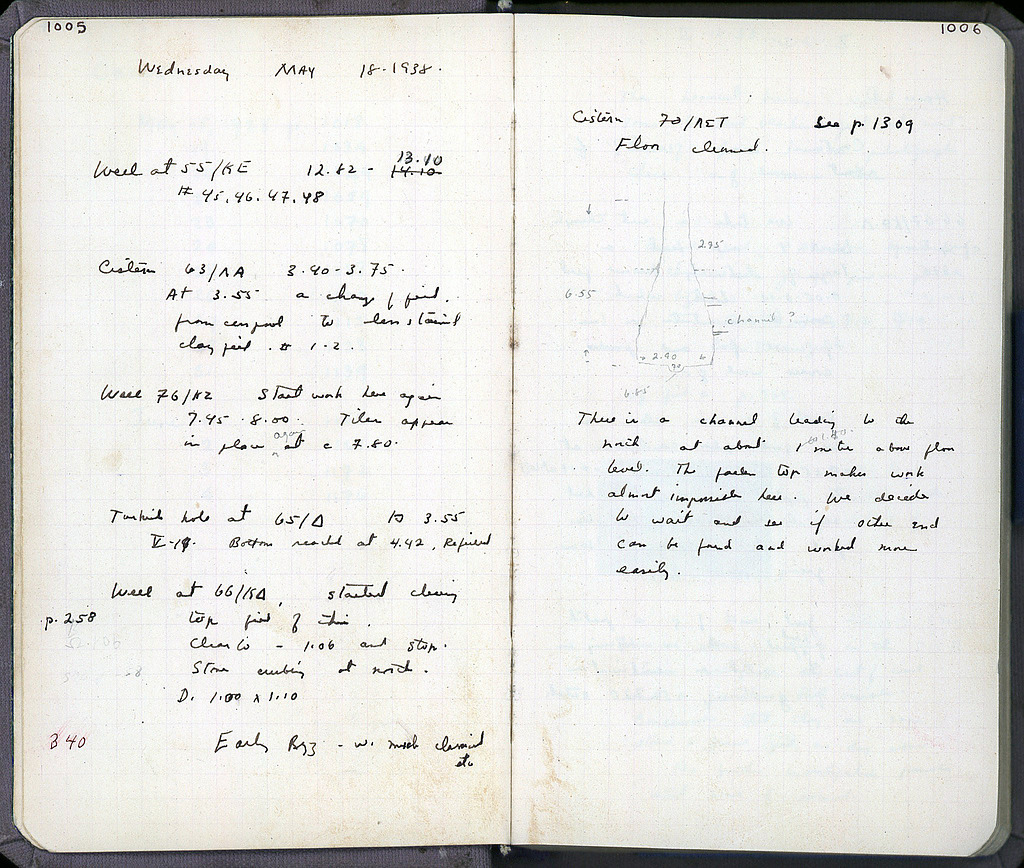 1005
Wednesday MAY 18-1938.
Well at 55/KE 12.82 - 13.10 14.10
# 45, 46, 47, 48
Cistern 63/ΛΑ 3.40-3.75.
At 3.55 a change of fill,
from cesspool to less stained
clay fill. # 1-2.
Well 76/KZ Start work here again
7.45-8.00. Tiles appear
in place again at c 7.80.
Turkish hole at 65/Δ to 3.55
Bottom reached at 4.42, Refilled
Well at 66/KΔ, started clearing
p. 258 top fill of this.
Clear to - 1.06 and stop.
Stone curbing at north.
D. 1.00 x 1.10
B 40 Early Byz - w. much classical
etc
1006
Cistern 70/ΛΣΤ See p. 1309
Floor cleaned.
2.75
6.55
channel ?
2.90
6.85
There is a channel leading to the
north at about 1 metre above floor
level. The fallen top makes work
almost impossible here. We decide
to wait and see if other end
can be found and worked more
easily.